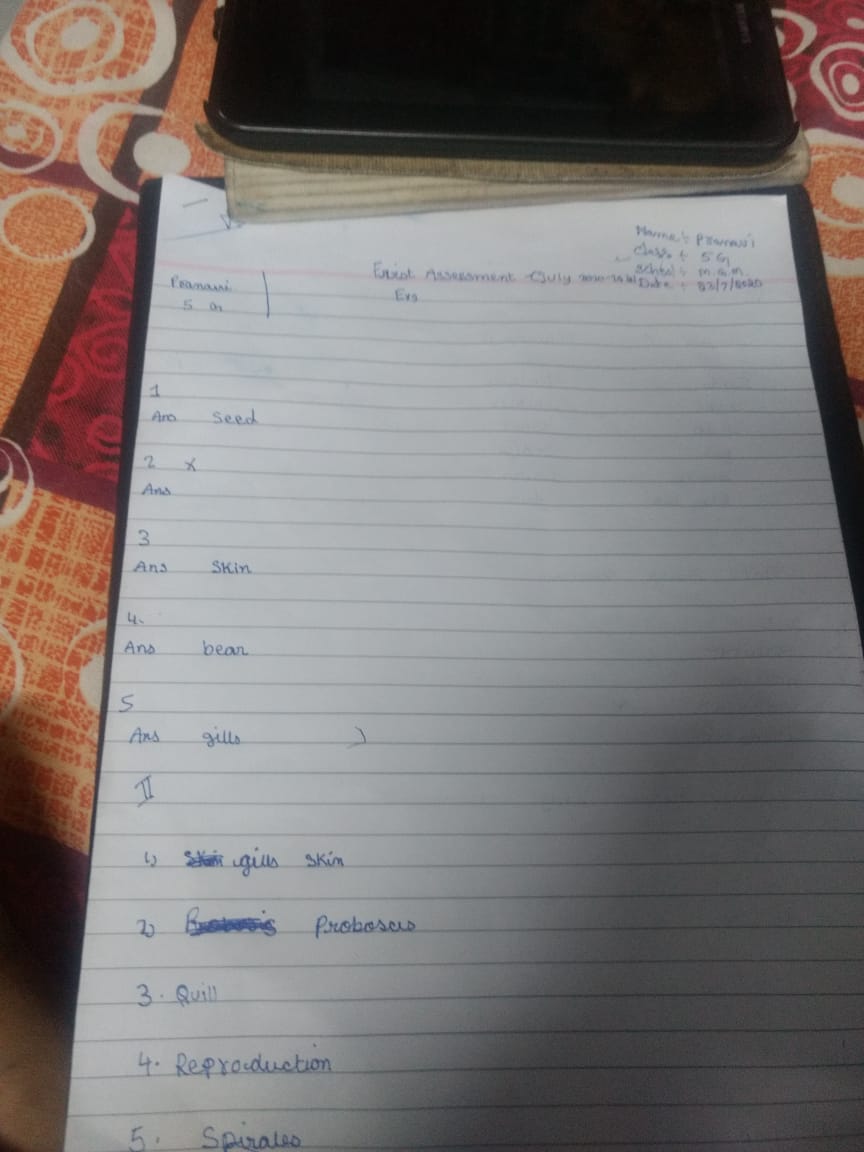 Name : Pranavi
Class : 5 G
School : m.g.m.
Date : 23/7/2020
Pranavi
5 G
First Assessment July
Evs
1
Ans seed
2 x
Ans
3
Ans Skin
4.
Ans bear
5
Ans gills )
II
1) gills skin
2) Proboscis
3. Quill
4. Reproduction
5. Spirales